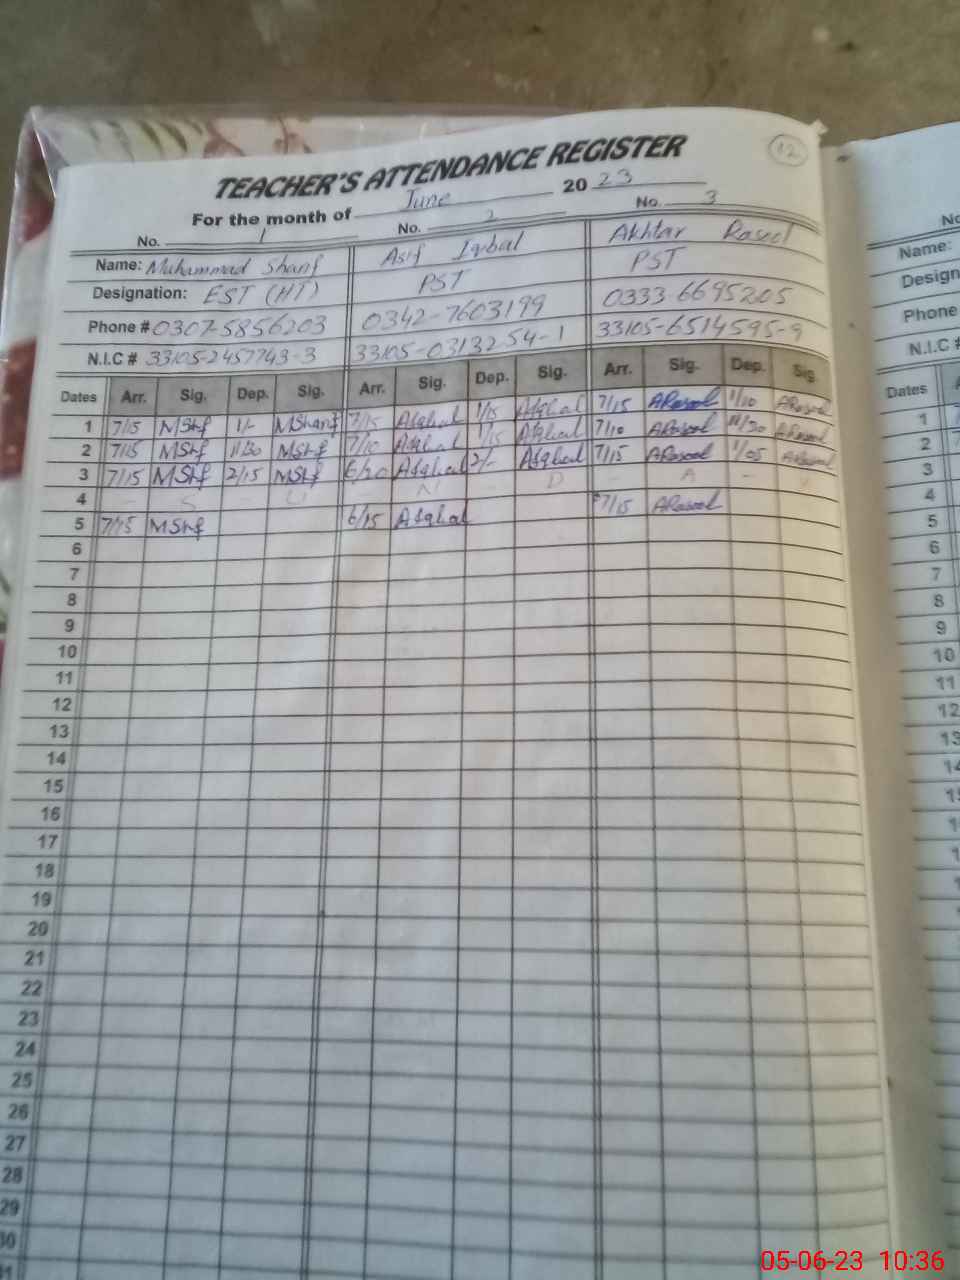 12
TEACHER'S ATTENDANCE REGISTER
For the month of June 2023
No. 1 No. 2 No. 3
Name: Muhammad Sharif Asif Iqbal Akhtar Rasool
Designation: EST (HT) PST PST
Phone # 0307-5856203 0342-7603199 0333 6695205
N.I.C # 33105-2457743-3 33105-03132-54-1 33105-6514595-9
Dates Arr. Sig. Dep. Sig. Arr. Sig. Dep. Sig. Arr. Sig. Dep. Sig.
1 7/15 MShf 1/- MSharif 7/15 AIqbal 1/15 AIqbal 7/15 ARasool 1/10 ARasool
2 7/15 MShf 11/30 MShf 7/10 AIqbal AIqbal 7/10 ARasool 11/30 ARasool
3 7/15 MShf 2/15 MShf 6/20 AIqbal 2/- AIqbal 7/15 ARasool 1/05 ARasool
4 - S - U - N - D - A - Y
5 7/15 MShf 6/15 AIqbal 7/15 ARasool
6
7
8
9
10
11
12
13
14
15
16
17
18
19
20
21
22
23
24
25
26
27
28
29
30
31
No
Name:
Design
Phone
N.I.C #
Dates
1
2
3
4
5
6
7
8
9
10
11
12
13
05-06-23 10:36